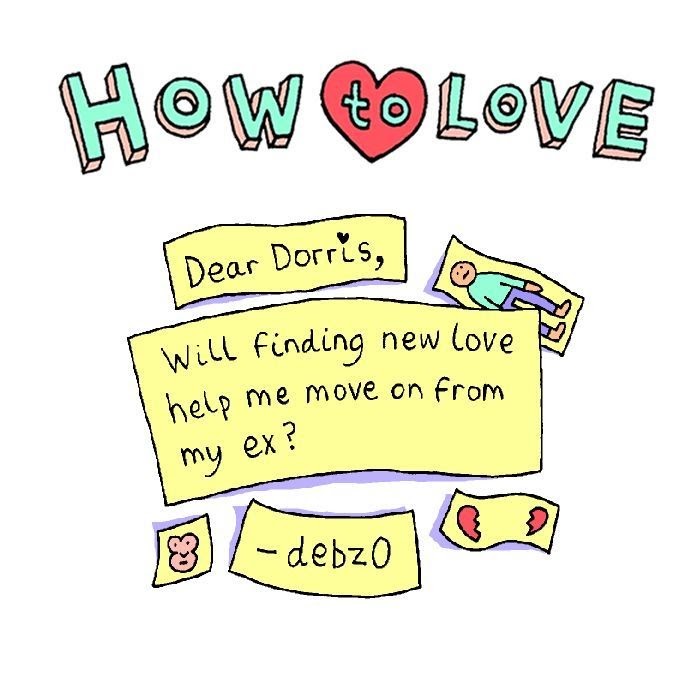 HOW to LOVE
Dear Dorris,
Will finding new love
help me move on from
my ex?
- debzO